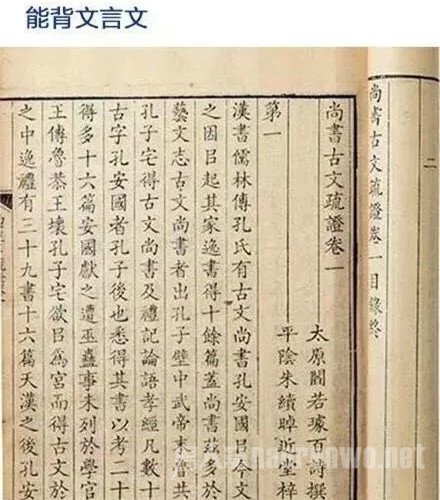 能背文言文
尚書古文疏證卷一目錄終
二
尚書古文疏證卷一
太原閻若璩百詩撰
平陰朱續晫近堂梓
第一
漢書儒林傳孔氏有古文尚書孔安國㠯今文
之因㠯起其家逸書得十餘篇蓋尚書茲多於
藝文志古文尚書者出孔子壁中武帝末魯共
孔子宅得古文尚書及禮記論語孝經凡數十
古字孔安國者孔子後也悉得其書以考二十
得多十六篇安國獻之遭巫蠱事未列於學官
王傳魯恭王壞孔子宅欲㠯爲宮而得古文於
之中逸禮有三十九書十六篇天漢之後孔安